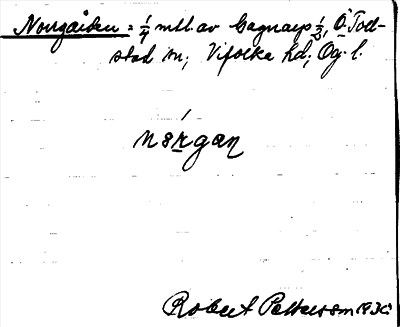 Norrgården = 1/4 mtl. av Gagnarp 1/2, Ö. Tod-
stad sn; Vifolka hd; Ög. l.
nórgan
Robert Pettersson 1930